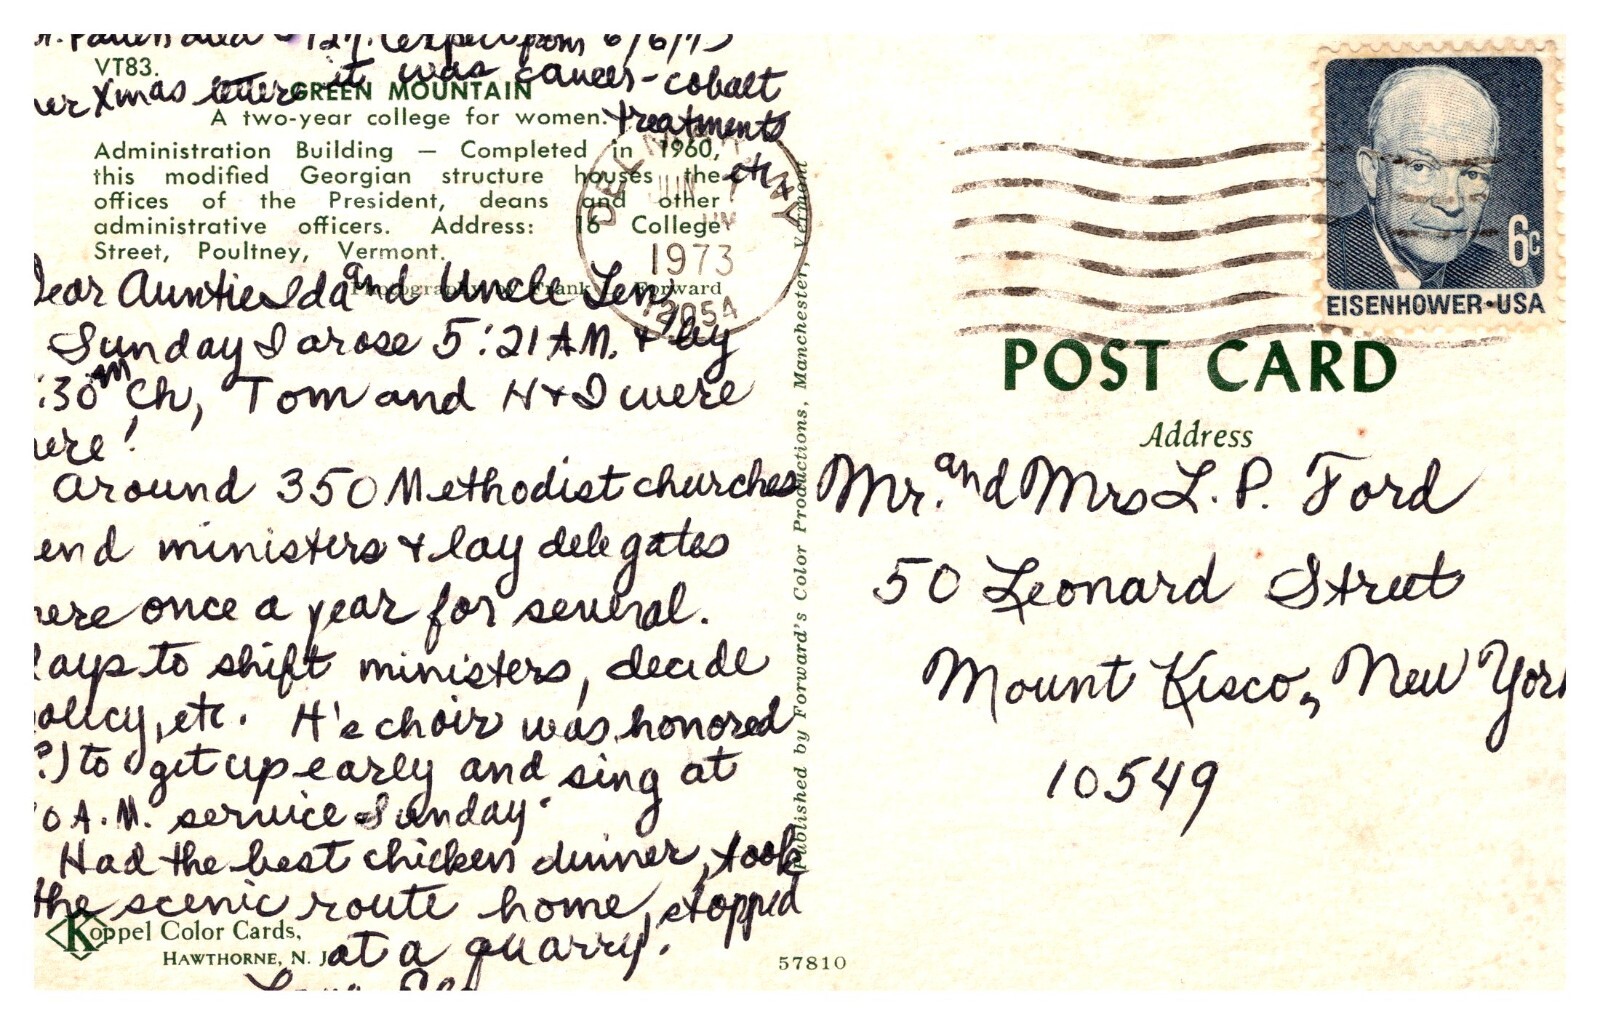 6/6/73
VT83. it was cancer-cobalt
Xmas
GREEN MOUNTAIN
A two-year college for women. treatments
Administration Building — Completed in 1960,
this modified Georgian structure houses the etc.
offices of the President, deans and other
administrative officers. Address: 16 College
Street, Poultney, Vermont.
Photography by Frank Forward
DELMAR NY
JUN
PM
1973
12054
ear Auntie Ida and Uncle Len,
Sunday I arose 5:21 A.M. + by
:30 Ch, Tom and H + I were
ere!
Around 350 Methodist churches
end ministers + lay delegates
ere once a year for several.
ays to shift ministers, decide
olicy, etc. H's choir was honored
?) to get up early and sing at
0 A.M. service Sunday.
Had the best chicken dinner, took
the scenic route home, stopped
at a quarry.
Koppel Color Cards,
HAWTHORNE, N. J.
57810
Published by Forward's Color Productions, Manchester, Vermont
6c
EISENHOWER·USA
POST CARD
Address
Mr. and Mrs L. P. Ford
50 Leonard Street
Mount Kisco, New York
10549